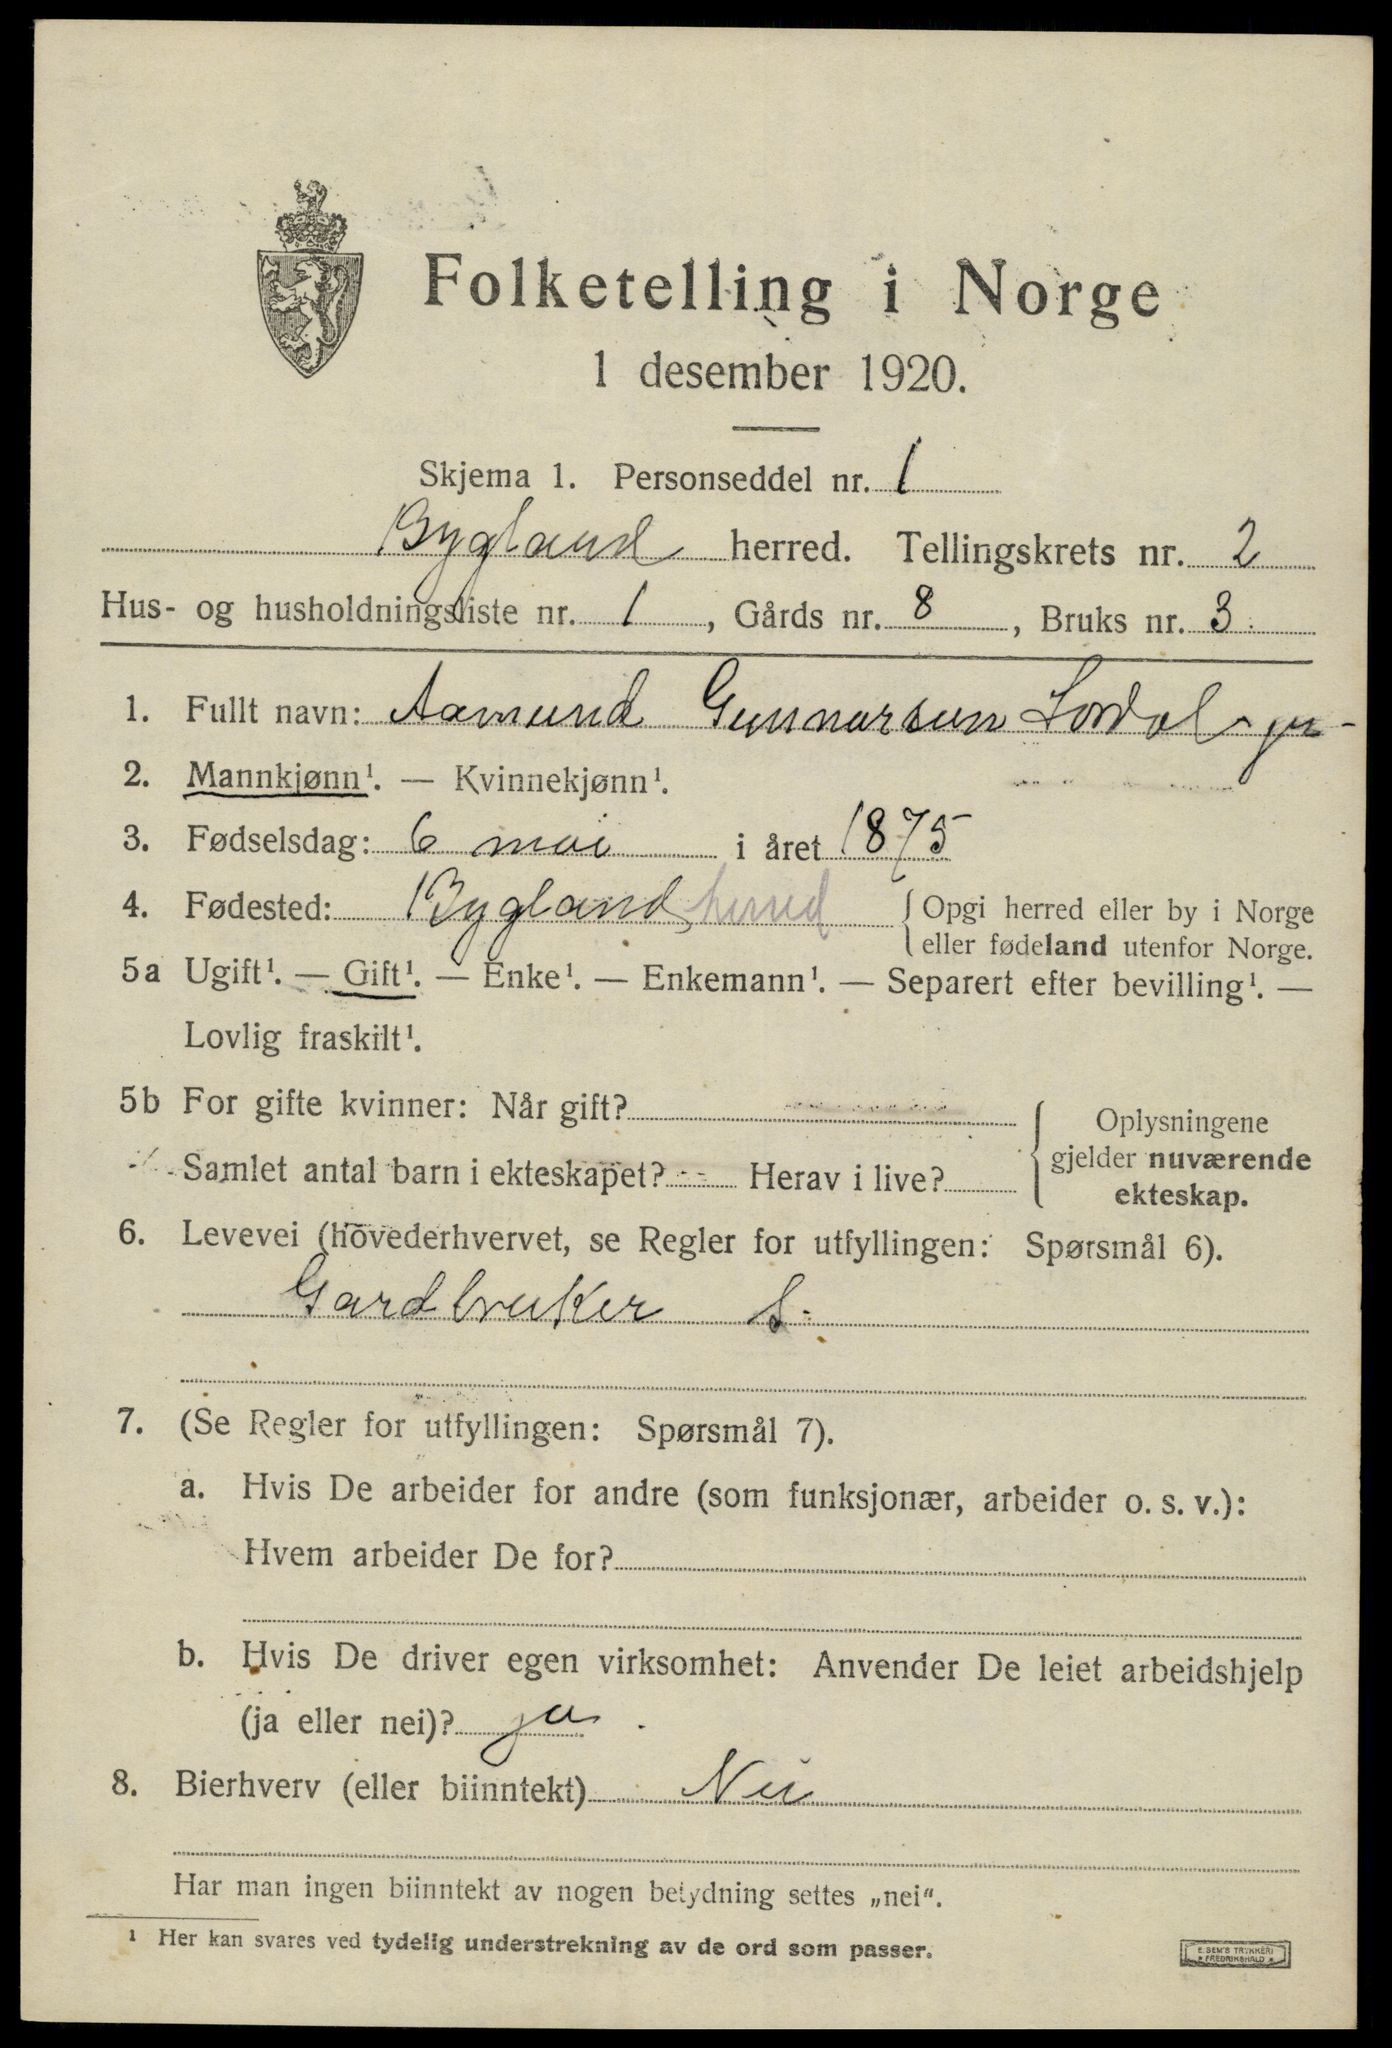 Folketelling i Norge
1 desember 1920.
Skjema 1. Personseddel nr. 1
Bygland herred. Tellingskrets nr. 2
Hus- og husholdningsliste nr. 1, Gårds nr. 8, Bruks nr. 3
1. Fullt navn: Aamund Gunnarsen Lordal
2. Mannkjønn¹. — Kvinnekjønn¹.
3. Fødselsdag: 6 mai i året 1875
4. Fødested: Bygland herred { Opgi herred eller by i Norge
eller fødeland utenfor Norge.
5a Ugift¹. — Gift¹. — Enke¹. — Enkemann¹. — Separert efter bevilling¹. —
Lovlig fraskilt¹.
5b For gifte kvinner: Når gift?
Samlet antal barn i ekteskapet? Herav i live?
{ Oplysningene
gjelder nuværende
ekteskap.
6. Levevei (hovederhvervet, se Regler for utfyllingen: Spørsmål 6).
Gardbruker S.
7. (Se Regler for utfyllingen: Spørsmål 7).
a. Hvis De arbeider for andre (som funksjonær, arbeider o. s. v.):
Hvem arbeider De for?
b. Hvis De driver egen virksomhet: Anvender De leiet arbeidshjelp
(ja eller nei)? ja.
8. Bierhverv (eller biinntekt) Nei
Har man ingen biinntekt av nogen betydning settes „nei“.
¹ Her kan svares ved tydelig understrekning av de ord som passer.
E. SEM'S TRYKKERI
FREDRIKSHALD